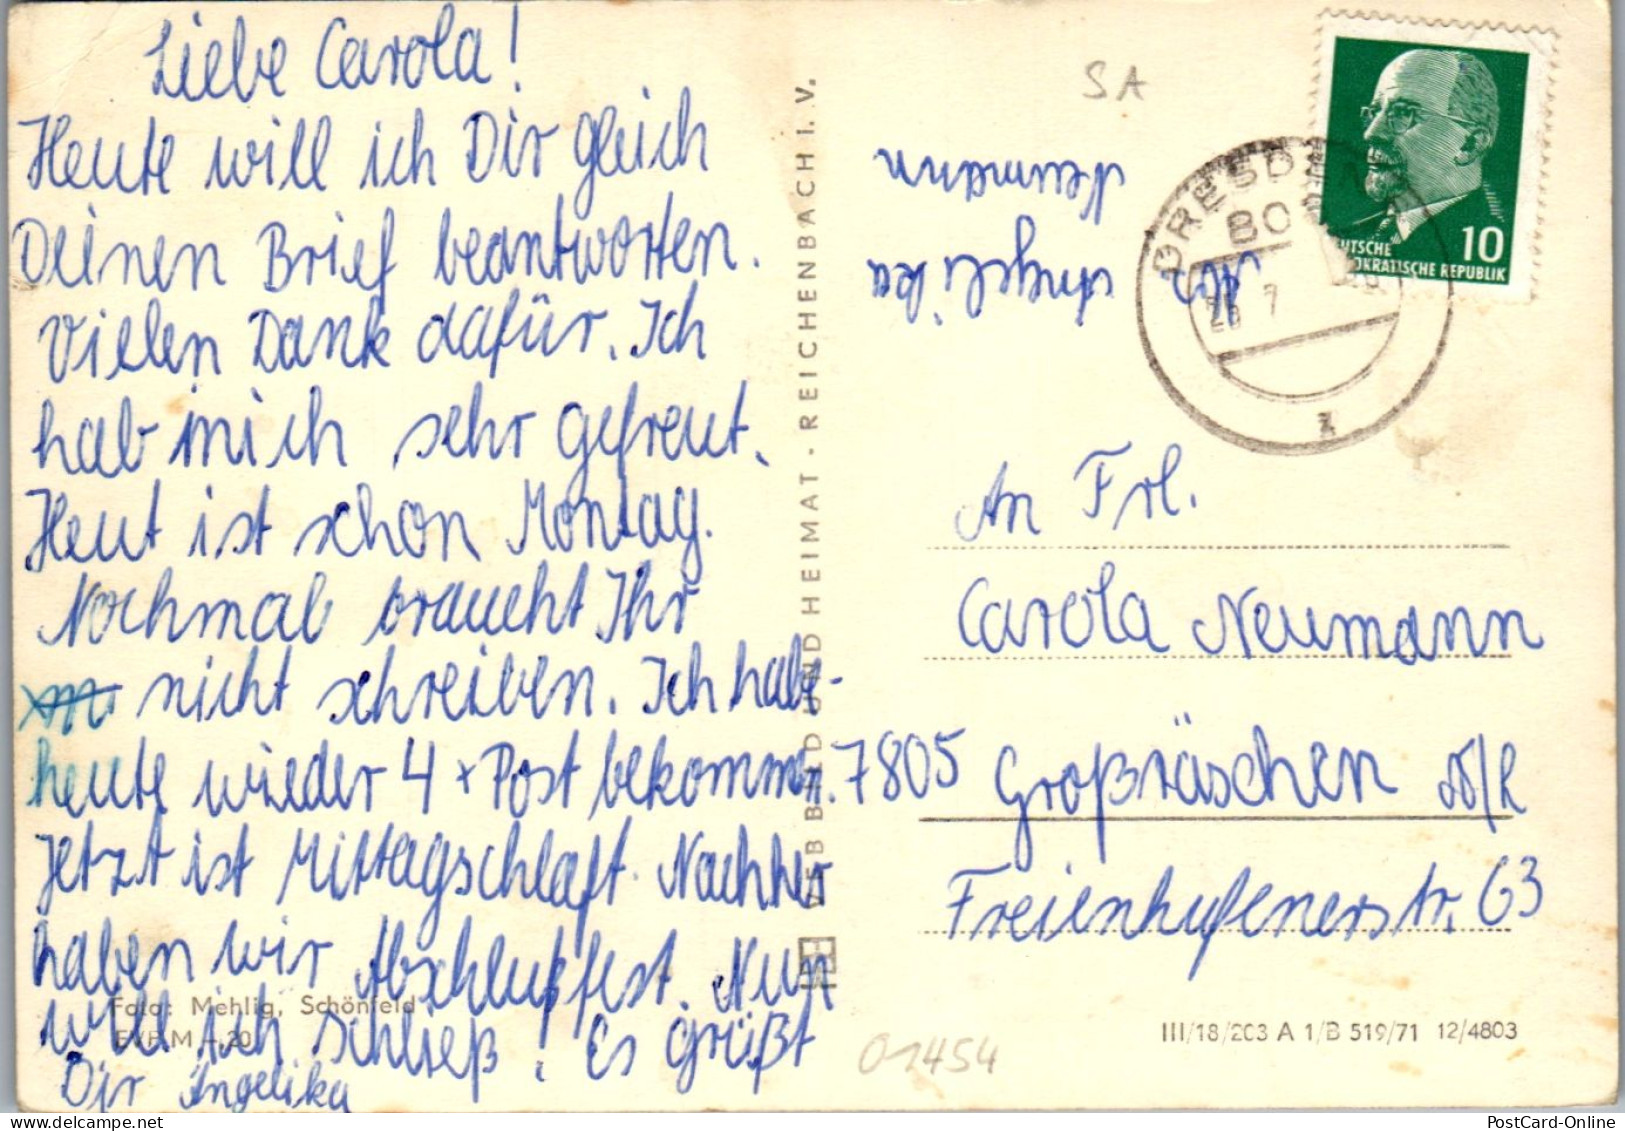 Liebe Carola!
Heute will ich Dir gleich
Deinen Brief beantworten.
Vielen Dank dafür. Ich
hab mich sehr gefreut.
Heut ist schon Montag.
Nochmal braucht Ihr
nicht schreiben. Ich habe
heute wieder 4 x Post bekomm.
Jetzt ist Mittagschlaft. Nachher
haben wir Abschlußfest. Nun
will ich schließ! Es Grüßt
Dir Angelika
Foto: Mehlig, Schönfeld
EVP M -,20
VEB BILD UND HEIMAT · REICHENBACH I. V.
SA
Angelika
Neumann
DRESDEN
BO
26 7
DEUTSCHE
DEMOKRATISCHE REPUBLIK
10
An Frl.
Carola Neumann
7805 Großräschen
Freienhufenerstr. 63
III/18/203 A 1/B 519/71 12/4803
01454
PostCard-Online